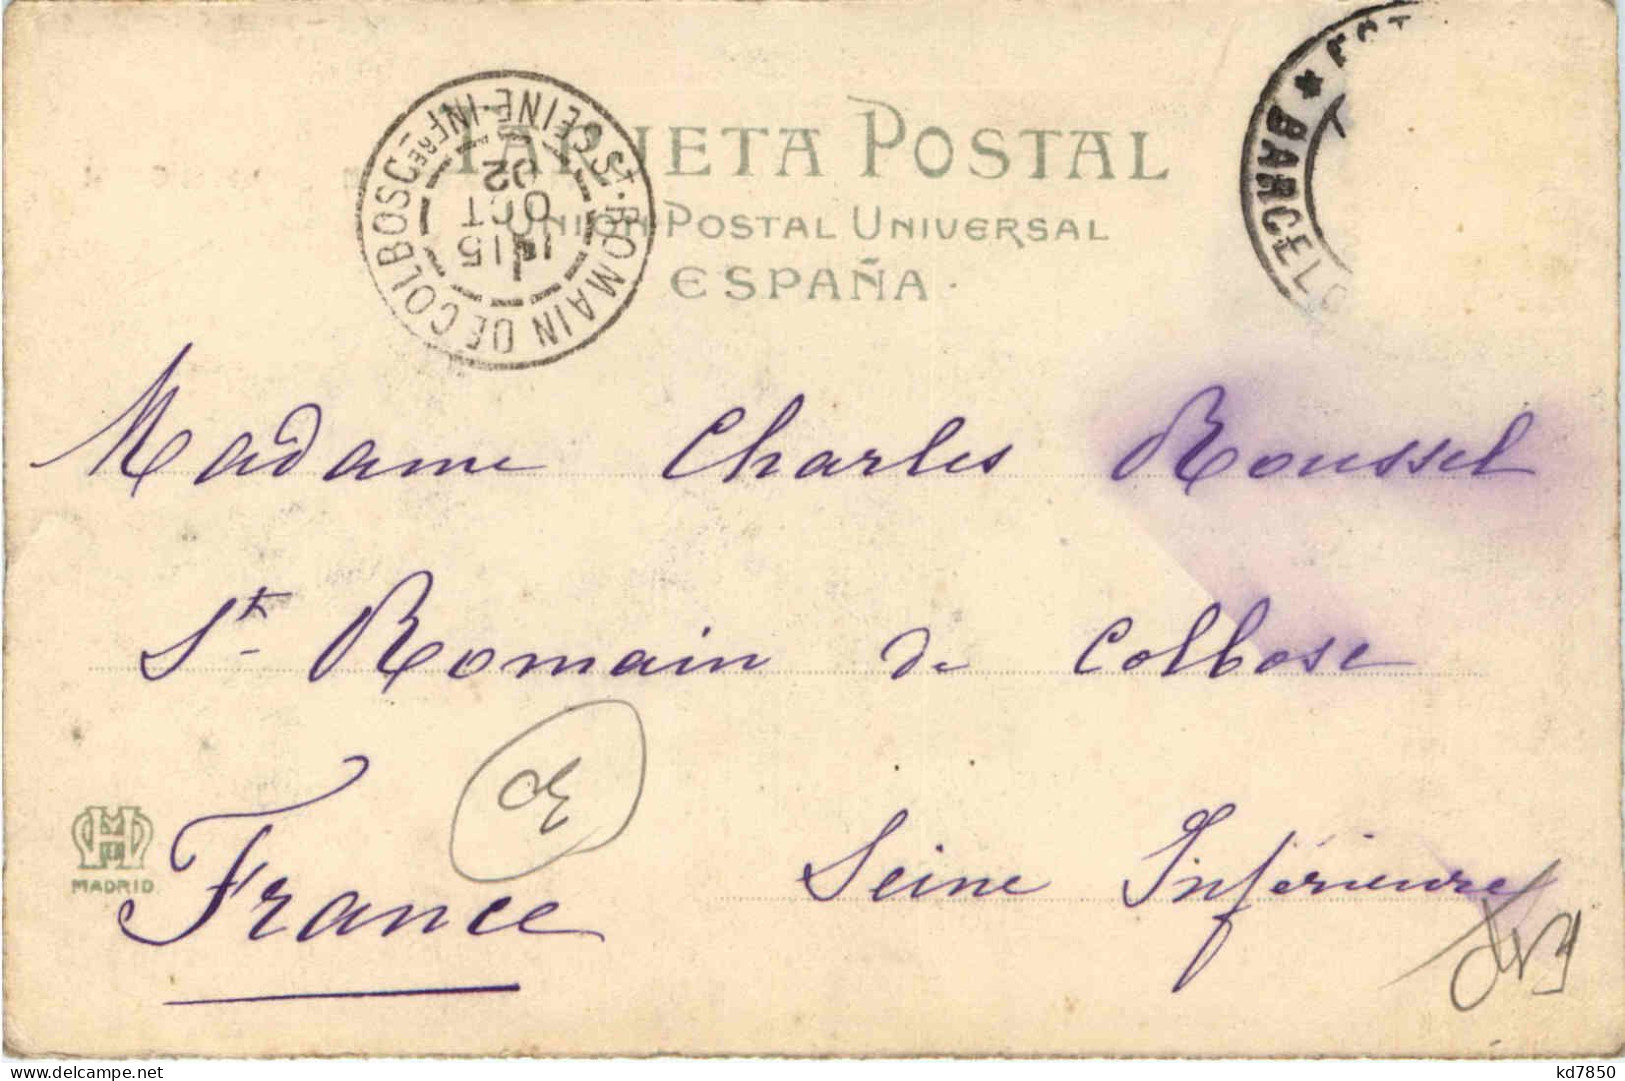 TARJETA POSTAL
UNION POSTAL UNIVERSAL
ESPAÑA
ST. ROMAIN DE COLBOSC
SEINE-INFRE
15
OCT
02
BARCELO
Madame Charles Roussel
St Romain de Colbosc
France
Seine Inférieure
MADRID
kd7850